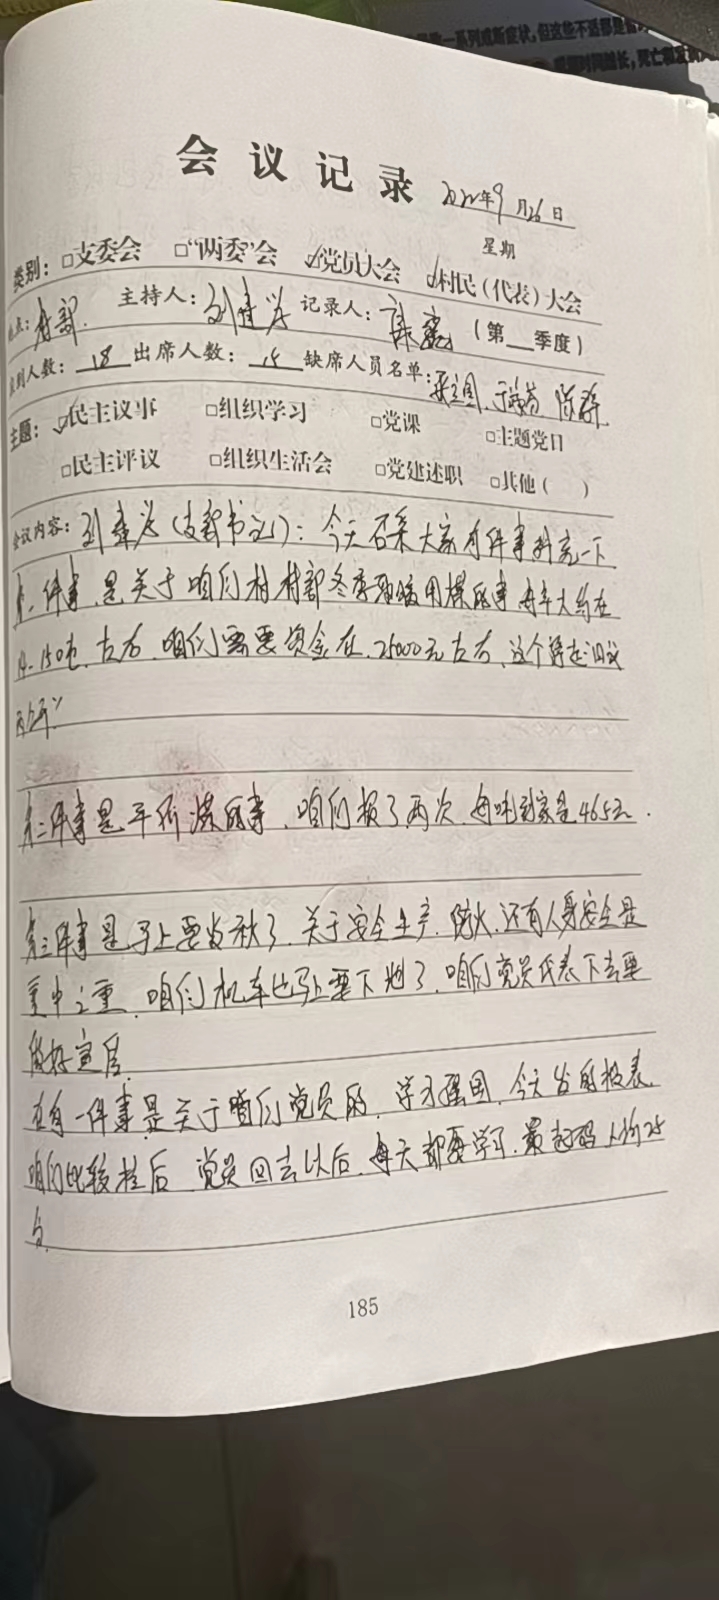 一系列戒断症状,但这些不适都是暂
时间越长,死亡和发病
会议记录 2022年9月26日
星期
类别:□支委会 □“两委”会 ☑党员大会 ☑村民(代表)大会
地点:村部 主持人:刘建兴 记录人: (第__季度)
应到人数:18 出席人数:15 缺席人员名单:
主题:☑民主议事 □组织学习 □党课 □主题党日
□民主评议 □组织生活会 □党建述职 □其他( )
会议内容:刘建兴(支部书记):今天召集大家有件事研究一下
第一件事,是关于咱们村村部冬季取暖用煤的事每年大约在
吨左右,咱们需要资金在25000元左右,这个
第二件事是平价煤的事,咱们报了两次,每吨到家是465元.
第三件事是马上要发秋了,关于安全生产,防火,还有人身安全是
重中之重,咱们机车也马上要下地了,咱们党员代表下去要
做好宣传.
在有一件事是关于咱们党员的,学习强国,今天发的报表,
咱们比较拦后,党员回去以后,每天都要学习,最起码人均25
分.
185